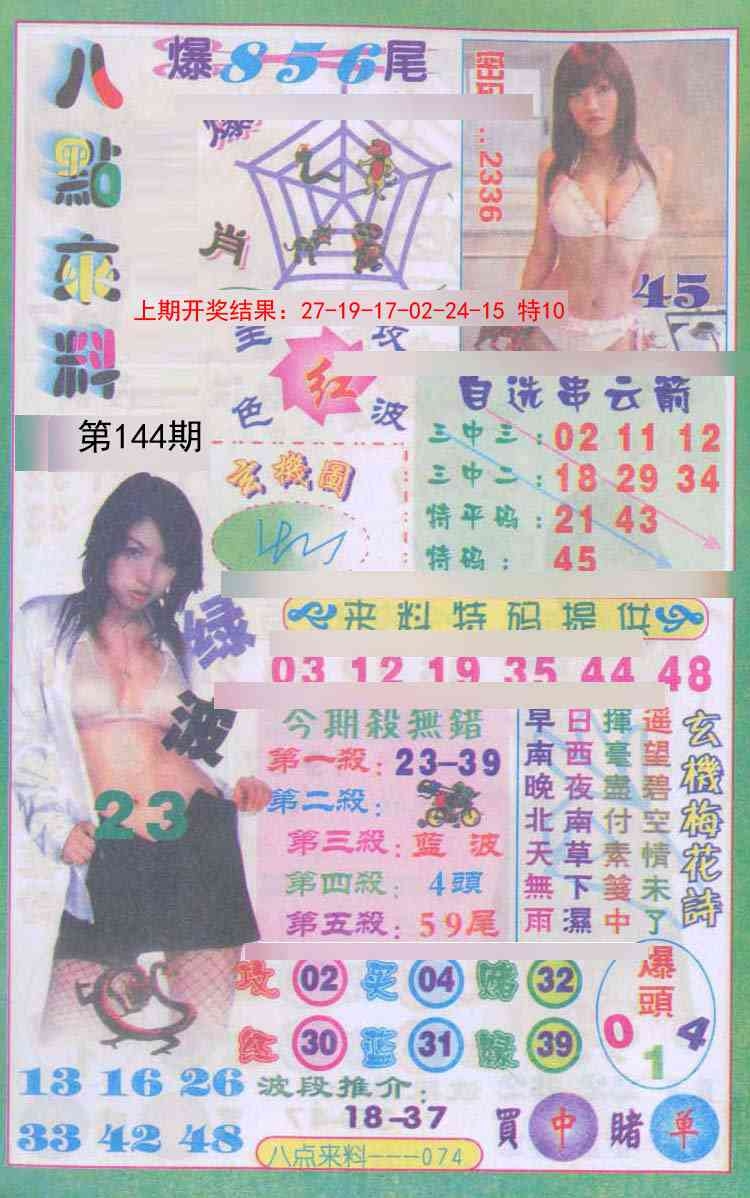 八點來料
爆856尾
2336
肖
45
上期开奖结果：27-19-17-02-24-15 特10
红
色 波
第144期
自选串云箭
三中三：02 11 12
三中二：18 29 34
特平码：21 43
特码：45
玄機圖
来料特码提供
03 12 19 35 44 48
绿波
23
今期殺無錯
第一殺：23-39
第二殺：
第三殺：蓝波
第四殺：4頭
第五殺：59尾
玄機梅花詩
遥望碧空情未了
揮毫盡付素箋中
日西夜南草下濕
早南晚北天無雨
攻 02 买 04 赌 32
红 30 蓝 31 綠 39
爆頭
0 1 4
13 16 26
33 42 48
波段推介：
18-37
買中賭单
八点来料----074